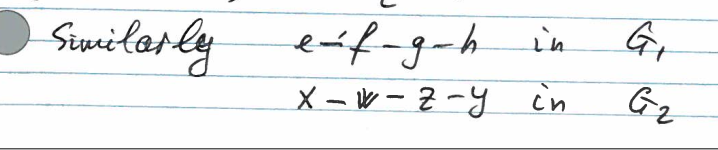 Similarly e-f-g-h in G₁
x-w-z-y in G₂